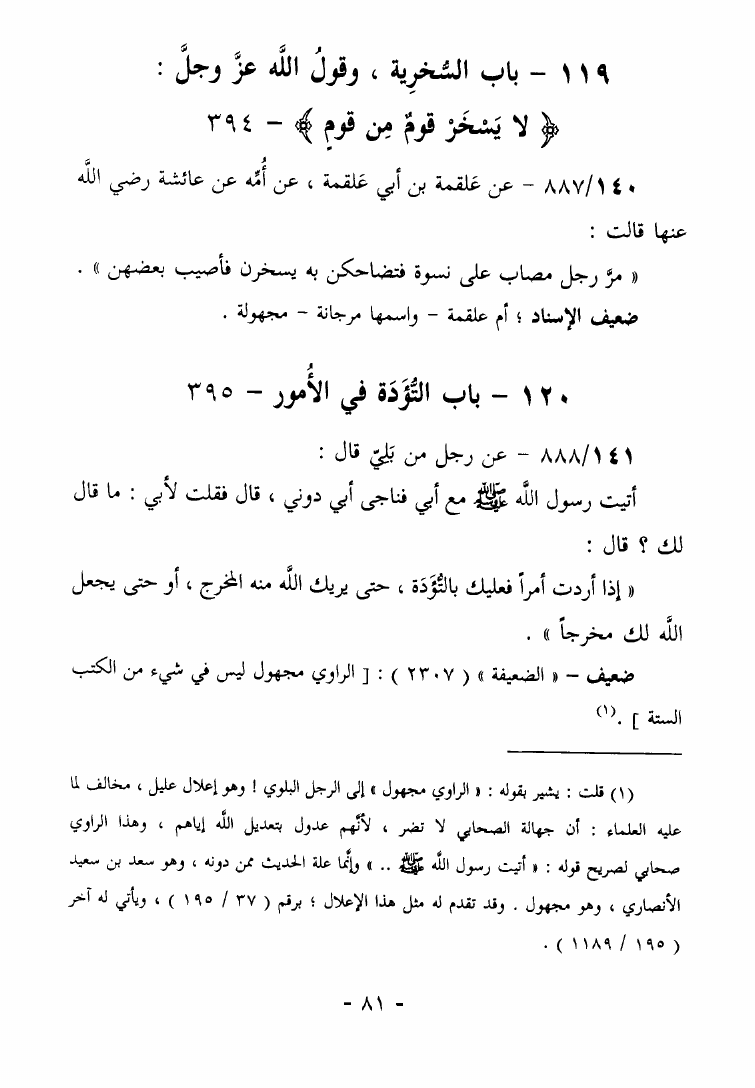 ١١٩ - باب السُّخرِية ، وقولُ اللَّه عزَّ وجلَّ :
﴿ لا يَسْخَرْ قومٌ مِن قومٍ ﴾ - ٣٩٤
٨٨٧/١٤٠ - عن عَلقمة بن أبي عَلقمة ، عن أُمِّه عن عائشة رضي اللَّه
عنها قالت :
« مرَّ رجل مصاب على نسوة فتضاحكن به يسخرن فأصيب بعضهن » .
ضعيف الإسناد ؛ أم علقمة - واسمها مرجانة - مجهولة .
١٢٠ - باب التُّؤَدَة في الأُمور - ٣٩٥
٨٨٨/١٤١ - عن رجل من بَلِيّ قال :
أتيت رسول اللَّه ﷺ مع أبي فناجى أبي دوني ، قال فقلت لأبي : ما قال
لك ؟ قال :
« إذا أردت أمراً فعليك بالتُّؤَدَة ، حتى يريك اللَّه منه المخرج ، أو حتى يجعل
اللَّه لك مخرجاً » .
ضعيف - « الضعيفة » ( ٢٣٠٧ ) : [ الراوي مجهول ليس في شيء من الكتب
الستة ] .(١)
(١) قلت : يشير بقوله : « الراوي مجهول » إلى الرجل البلوي ! وهو إعلال عليل ، مخالف لما
عليه العلماء : أن جهالة الصحابي لا تضر ، لأنَّهم عدول بتعديل اللَّه إياهم ، وهذا الراوي
صحابي لصريح قوله : « أتيت رسول اللَّه ﷺ .. » وإنَّما علة الحديث ممن دونه ، وهو سعد بن سعيد
الأنصاري ، وهو مجهول . وقد تقدم له مثل هذا الإعلال ؛ برقم ( ٣٧ / ١٩٥ ) ، ويأتي له آخر
( ١٩٥ / ١١٨٩ ) .
- ٨١ -